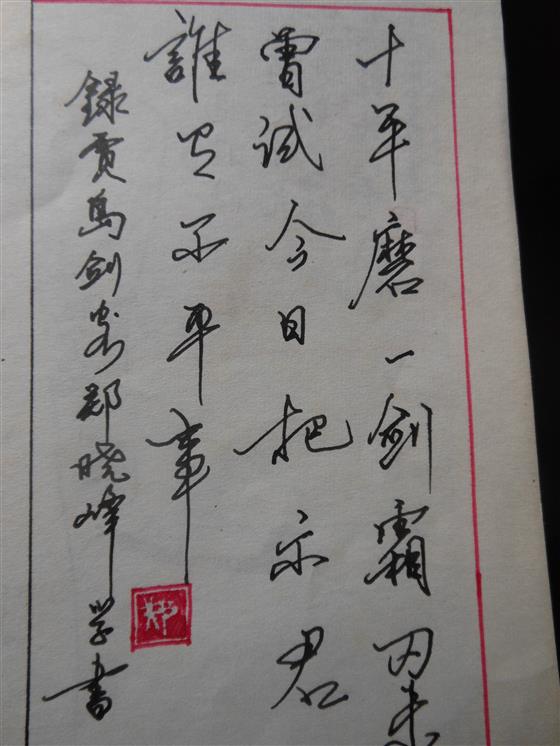 十年磨一剑霜刃未
曾试今日把示君
誰有不平事
録贾島剑客鄭晓峰学书
鄭